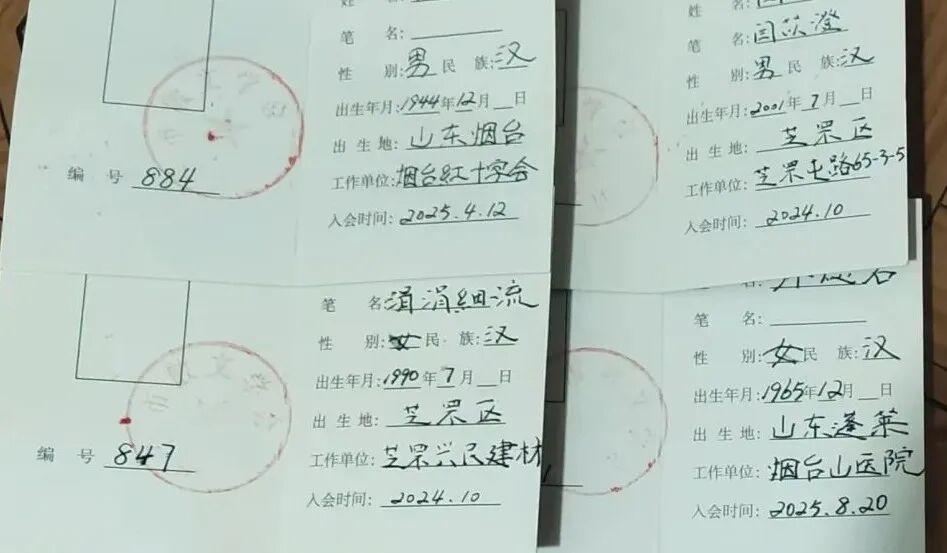 编 号 884
笔 名:
性 别:男 民 族:汉
出生年月:1944年12月 日
出 生 地:山东烟台
工作单位:烟台红十字会
入会时间:2025.4.12
姓 名:
笔 名:闫苡澄
性 别:男 民 族:汉
出生年月:2001年7月 日
出 生 地:芝罘区
工作单位:芝罘屯路65-3-5
入会时间:2024.10
编 号 847
笔 名:涓涓细流
性 别:女 民 族:汉
出生年月:1990年7月 日
出 生 地:芝罘区
工作单位:芝罘兴民建材
入会时间:2024.10
笔 名:
性 别:女 民 族:汉
出生年月:1965年12月 日
出 生 地:山东蓬莱
工作单位:烟台山医院
入会时间:2025.8.20